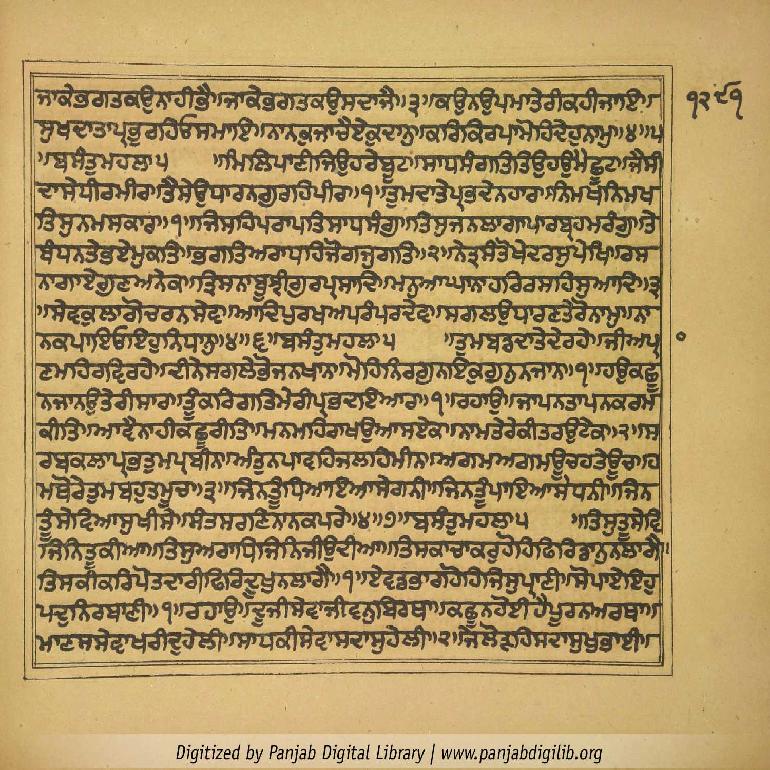 ਜਾਕੇਭਗਤਕਉਨਾਹੀਭੈ॥ਜਾਕੇਭਗਤਕਉਸਦਾਜੈ॥੩॥ਕਉਨਉਪਮਾਤੇਰੀਕਹੀਜਾਇ॥
੧੨੯੧
ਸੁਖਦਾਤਾਪ੍ਰਭੁਰਹਿਓਸਮਾਇ॥ਨਾਨਕੁਜਾਚੈਏਕੁਦਾਨੁ॥ਕਰਿਕਿਰਪਾਮੋਹਿਦੇਹੁਨਾਮੁ॥੪॥੫
॥ਬਸੰਤੁਮਹਲਾ੫ ॥ਮਿਲਿਪਾਣੀਜਿਉਹਰੇਬੂਟ॥ਸਾਧਸੰਗਤਿਤਿਉਹਉਮੈਛੂਟ॥ਜੈਸੀ
ਦਾਸੇਧੀਰਮੀਰ॥ਤੈਸੇਉਧਾਰਨਗੁਰਹਿਪੀਰ॥੧॥ਤੁਮਦਾਤੇਪ੍ਰਭਦੇਨਹਾਰ॥ਨਿਮਖਨਿਮਖ
ਤਿਸੁਨਮਸਕਾਰ॥੧॥ਜਿਸਹਿਪਰਾਪਤਿਸਾਧਸੰਗੁ॥ਤਿਸੁਜਨਲਾਗਾਪਾਰਬ੍ਰਹਮਰੰਗੁ॥ਤੇ
ਬੰਧਨਤੇਭਏਮੁਕਤਿ॥ਭਗਤਿਅਰਾਧਹਿਜੋਗਜੁਗਤਿ॥੨॥ਨੇਤ੍ਰਸੰਤੋਖੇਦਰਸੁਪੇਖਿ॥ਰਸ
ਨਾਗਾਏਗੁਣਅਨੇਕ॥ਤ੍ਰਿਸਨਾਬੂਝੀਗੁਰਪ੍ਰਸਾਦਿ॥ਮਨੁਆਘਾਨਾਹਰਿਰਸਹਿਸੁਆਦਿ॥੩
॥ਸੇਵਕੁਲਾਗੋਚਰਨਸੇਵ॥ਆਦਿਪੁਰਖਅਪਰੰਪਰਦੇਵ॥ਸਗਲਉਧਾਰਣਤੇਰੋਨਾਮੁ॥ਨਾ
ਨਕਪਾਇਓਇਹੁਨਿਧਾਨੁ॥੪॥੬॥ਬਸੰਤੁਮਹਲਾ੫ ॥ਤੁਮਬਡਦਾਤੇਦੇਰਹੇ॥ਜੀਅਪ੍ਰ
ਣਮਹਿਰਵਿਰਹੇ॥ਦੀਨੇਸਗਲੇਭੋਜਨਖਾਨ॥ਮੋਹਿਨਿਰਗੁਨਇਕੁਗੁਨੁਨਜਾਨ॥੧॥ਹਉਕਛੂ
ਨਜਾਨਉਤੇਰੀਸਾਰ॥ਤੂੰਕਰਿਗਤਿਮੇਰੀਪ੍ਰਭਦਇਆਰ॥੧॥ਰਹਾਉ॥ਜਾਪਨਤਾਪਨਕਰਮ
ਕੀਤਿ॥ਆਵੈਨਾਹੀਕਛੂਰੀਤਿ॥ਮਨਮਹਿਰਾਖਉਆਸਏਕ॥ਨਾਮਤੇਰੇਕੀਤਰਉਟੇਕ॥੨॥ਸ
ਰਬਕਲਾਪ੍ਰਭਤੁਮਪ੍ਰਬੀਨ॥ਅੰਤੁਨਪਾਵਹਿਜਲਹਿਮੀਨ॥ਅਗਮਅਗਮਊਚਹਤੇਊਚ॥ਹ
ਮਥੋਰੇਤੁਮਬਹੁਤਮੂਚ॥੩॥ਜਿਨਤੂੰਧਿਆਇਆਸੇਗਨੀ॥ਜਿਨਤੂੰਪਾਇਆਸੇਧਨੀ॥ਜਿਨ
ਤੂੰਸੇਵਿਆਸੁਖੀਸੇ॥ਸੰਤਸਰਣਿਨਾਨਕਪਰੇ॥੪॥੭॥ਬਸੰਤੁਮਹਲਾ੫ ॥ਤਿਸੁਤੂਸੇਵਿ
ਜਿਨਿਤੂਕੀਆ॥ਤਿਸੁਅਰਾਧਿਜਿਨਿਜੀਉਦੀਆ॥ਤਿਸਕਾਚਾਕਰੁਹੋਹਿਫਿਰਿਡਾਨੁਨਲਾਗੈ॥
ਤਿਸਕੀਕਰਿਪੋਤਦਾਰੀਫਿਰਿਦੂਖੁਨਲਾਗੈ॥੧॥ਏਵਡਭਾਗਹੋਹਿਜਿਸੁਪ੍ਰਾਣੀ॥ਸੋਪਾਏਇਹੁ
ਪਦੁਨਿਰਬਾਣੀ॥੧॥ਰਹਾਉ॥ਦੂਜੀਸੇਵਾਜੀਵਨੁਬਿਰਥਾ॥ਕਛੂਨਹੋਈਹੈਪੂਰਨਅਰਥਾ॥
ਮਾਣਸਸੇਵਾਖਰੀਦੁਹੇਲੀ॥ਸਾਧਕੀਸੇਵਾਸਦਾਸੁਹੇਲੀ॥੨॥ਜੇਲੋੜਹਿਸਦਾਸੁਖੁਭਾਈ॥
Digitized by Panjab Digital Library | www.panjabdigilib.org